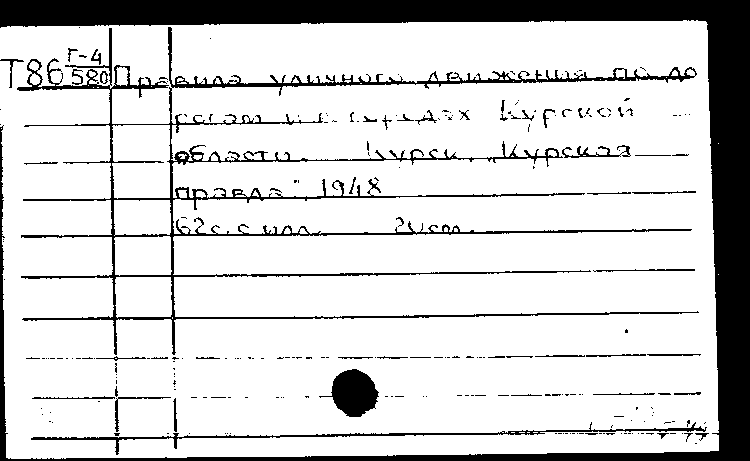 Т86 Г-4/580 Правила уличного движения по до
рогам и в городах Курской
области. Курск, "Курская
правда", 1948
62с. с илл. 20см.